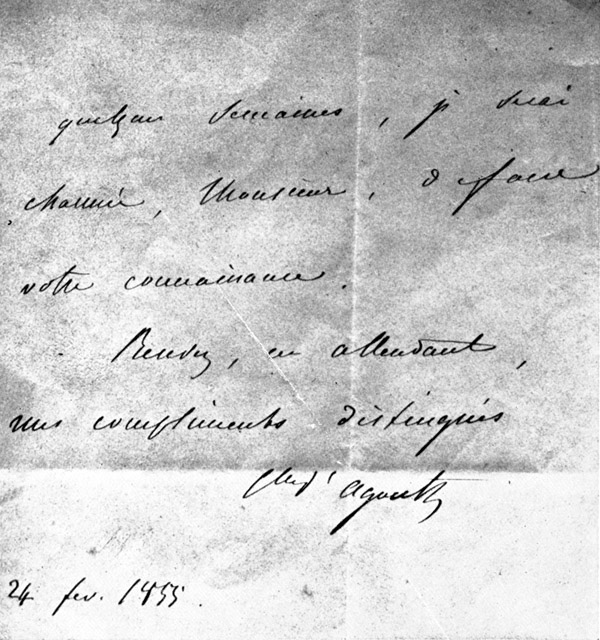 quelques semaines, je serai
charmée, Monsieur, de faire
votre connaissance.
Recevez, en attendant,
mes compliments distingués
d'Agoult
24 fev. 1855.